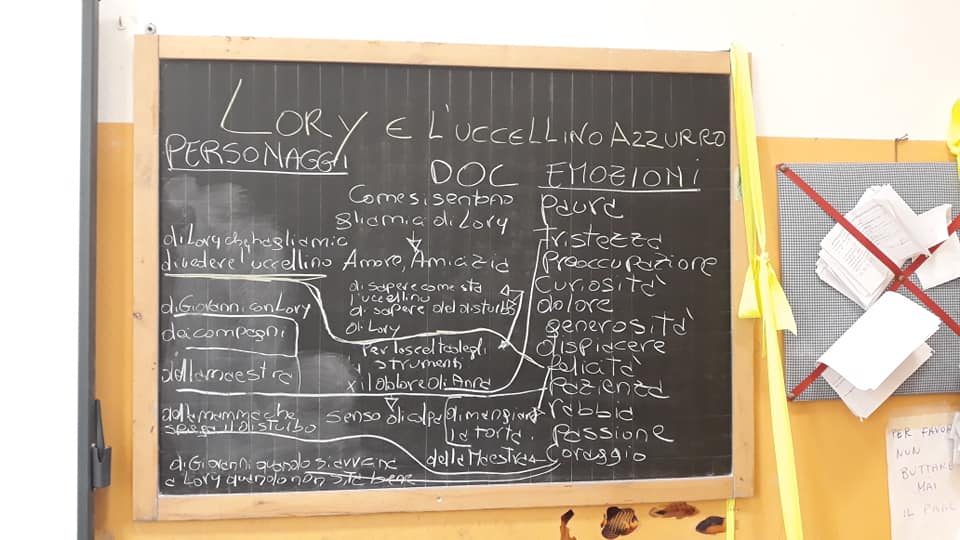 LORY E L'UCCELLINO AZZURRO
PERSONAGGI
DOC
EMOZIONI
Come si sentono
gli amici di Lory
di Lory che ha gli amici
di vedere l'uccellino
Amore, Amicizia
di sapere come sta
l'uccellino
di sapere del disturbo
di Lory
di Giovanni con Lory
dei compagni
della maestra
Per la scelta degli
strumenti
x il dolore di Anna
della mamma che
spiega il disturbo
senso di colpa
di mangiare
la torta
della Maestra
di Giovanni quando si avvicina
a Lory quando non sta bene
Paura
tristezza
Preoccupazione
Curiosità
dolore
generosità
dispiacere
felicità
Pazienza
rabbia
Passione
Coraggio
PER FAVOR
NON
BUTTARE
MAI
IL